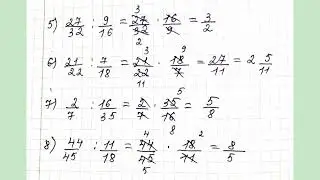 5) 27/32 : 9/16 = 27/32 · 16/9 = 3/2
6) 21/22 : 7/18 = 21/22 · 18/7 = 27/11 = 2 5/11
7) 2/7 : 16/35 = 2/7 · 35/16 = 5/8
8) 44/45 : 11/18 = 44/45 · 18/11 = 8/5